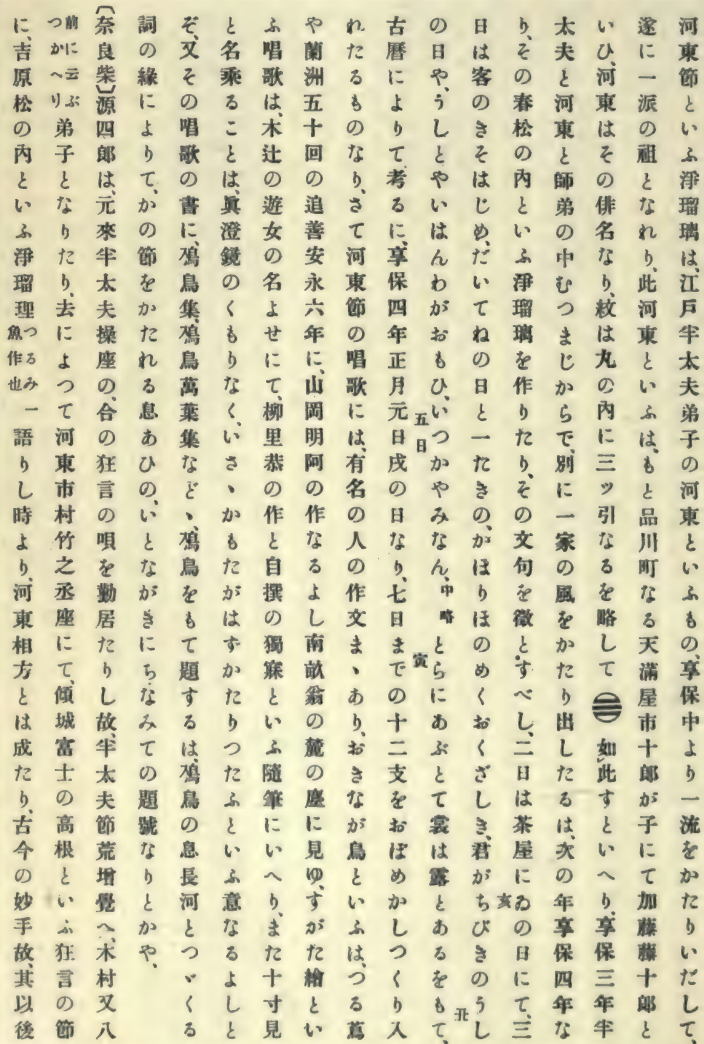 河東節といふ淨瑠璃は、江戸半太夫弟子の河東といふもの、享保中より一流をかたりいだして、
遂に一派の祖となれり、此河東といふは、もと品川町なる天滿屋市十郎が子にて加藤藤十郎と
いひ、河東はその俳名なり、紋は丸の內に三ッ引なるを略して 如此すといへり、享保三年半
太夫と河東と師弟の中むつまじからで、別に一家の風をかたり出したるは、次の年享保四年な
り、その春松の內といふ淨瑠璃を作りたり、その文句を徵とすべし、二日は茶屋にゐの日にて、三
亥
日は客のきそはじめ、だいてねの日と一たきの、かほりほのめくおくざしき、君がちびきのうし
丑
の日や、うしとやいはんわがおもひ、いつかやみなん、中略とらにあぶとて裳は露とあるをもて、
五日
寅
古曆によりて考るに、享保四年正月元日戌の日なり、七日までの十二支をおぼめかしつくり入
れたるものなり、さて河東節の唱歌には、有名の人の作文まゝあり、おきなが鳥といふは、つる蔦
や蘭洲五十回の追善安永六年に、山岡明阿の作なるよし南畝翁の麓の塵に見ゆ、すがた繪とい
ふ唱歌は、木辻の遊女の名よせにて、柳里恭の作と自撰の獨寐といふ隨筆にいへり、また十寸見
と名乘ることは、眞澄鏡のくもりなく、いさゝかもたがはずかたりつたふといふ意なるよしと
ぞ、又その唱歌の書に、鳰鳥集、鳰鳥萬葉集などゝ、鳰鳥をもて題するは、鳰鳥の息長河とつゞくる
詞の緣によりて、かの節をかたれる息あひの、いとながきにちなみての題號なりとかや、
〔奈良柴〕源四郎は、元來半太夫操座の、合の狂言の唄を勤居たりし故、半太夫節荒增覺へ、木村又八
前に云ぶ
つかへり弟子となりたり、去によつて河東市村竹之丞座にて、傾城富士の高根といふ狂言の節
に、吉原松の內といふ淨瑠理つるみ
魚作也一語りし時より、河東相方とは成たり、古今の妙手故、其以後